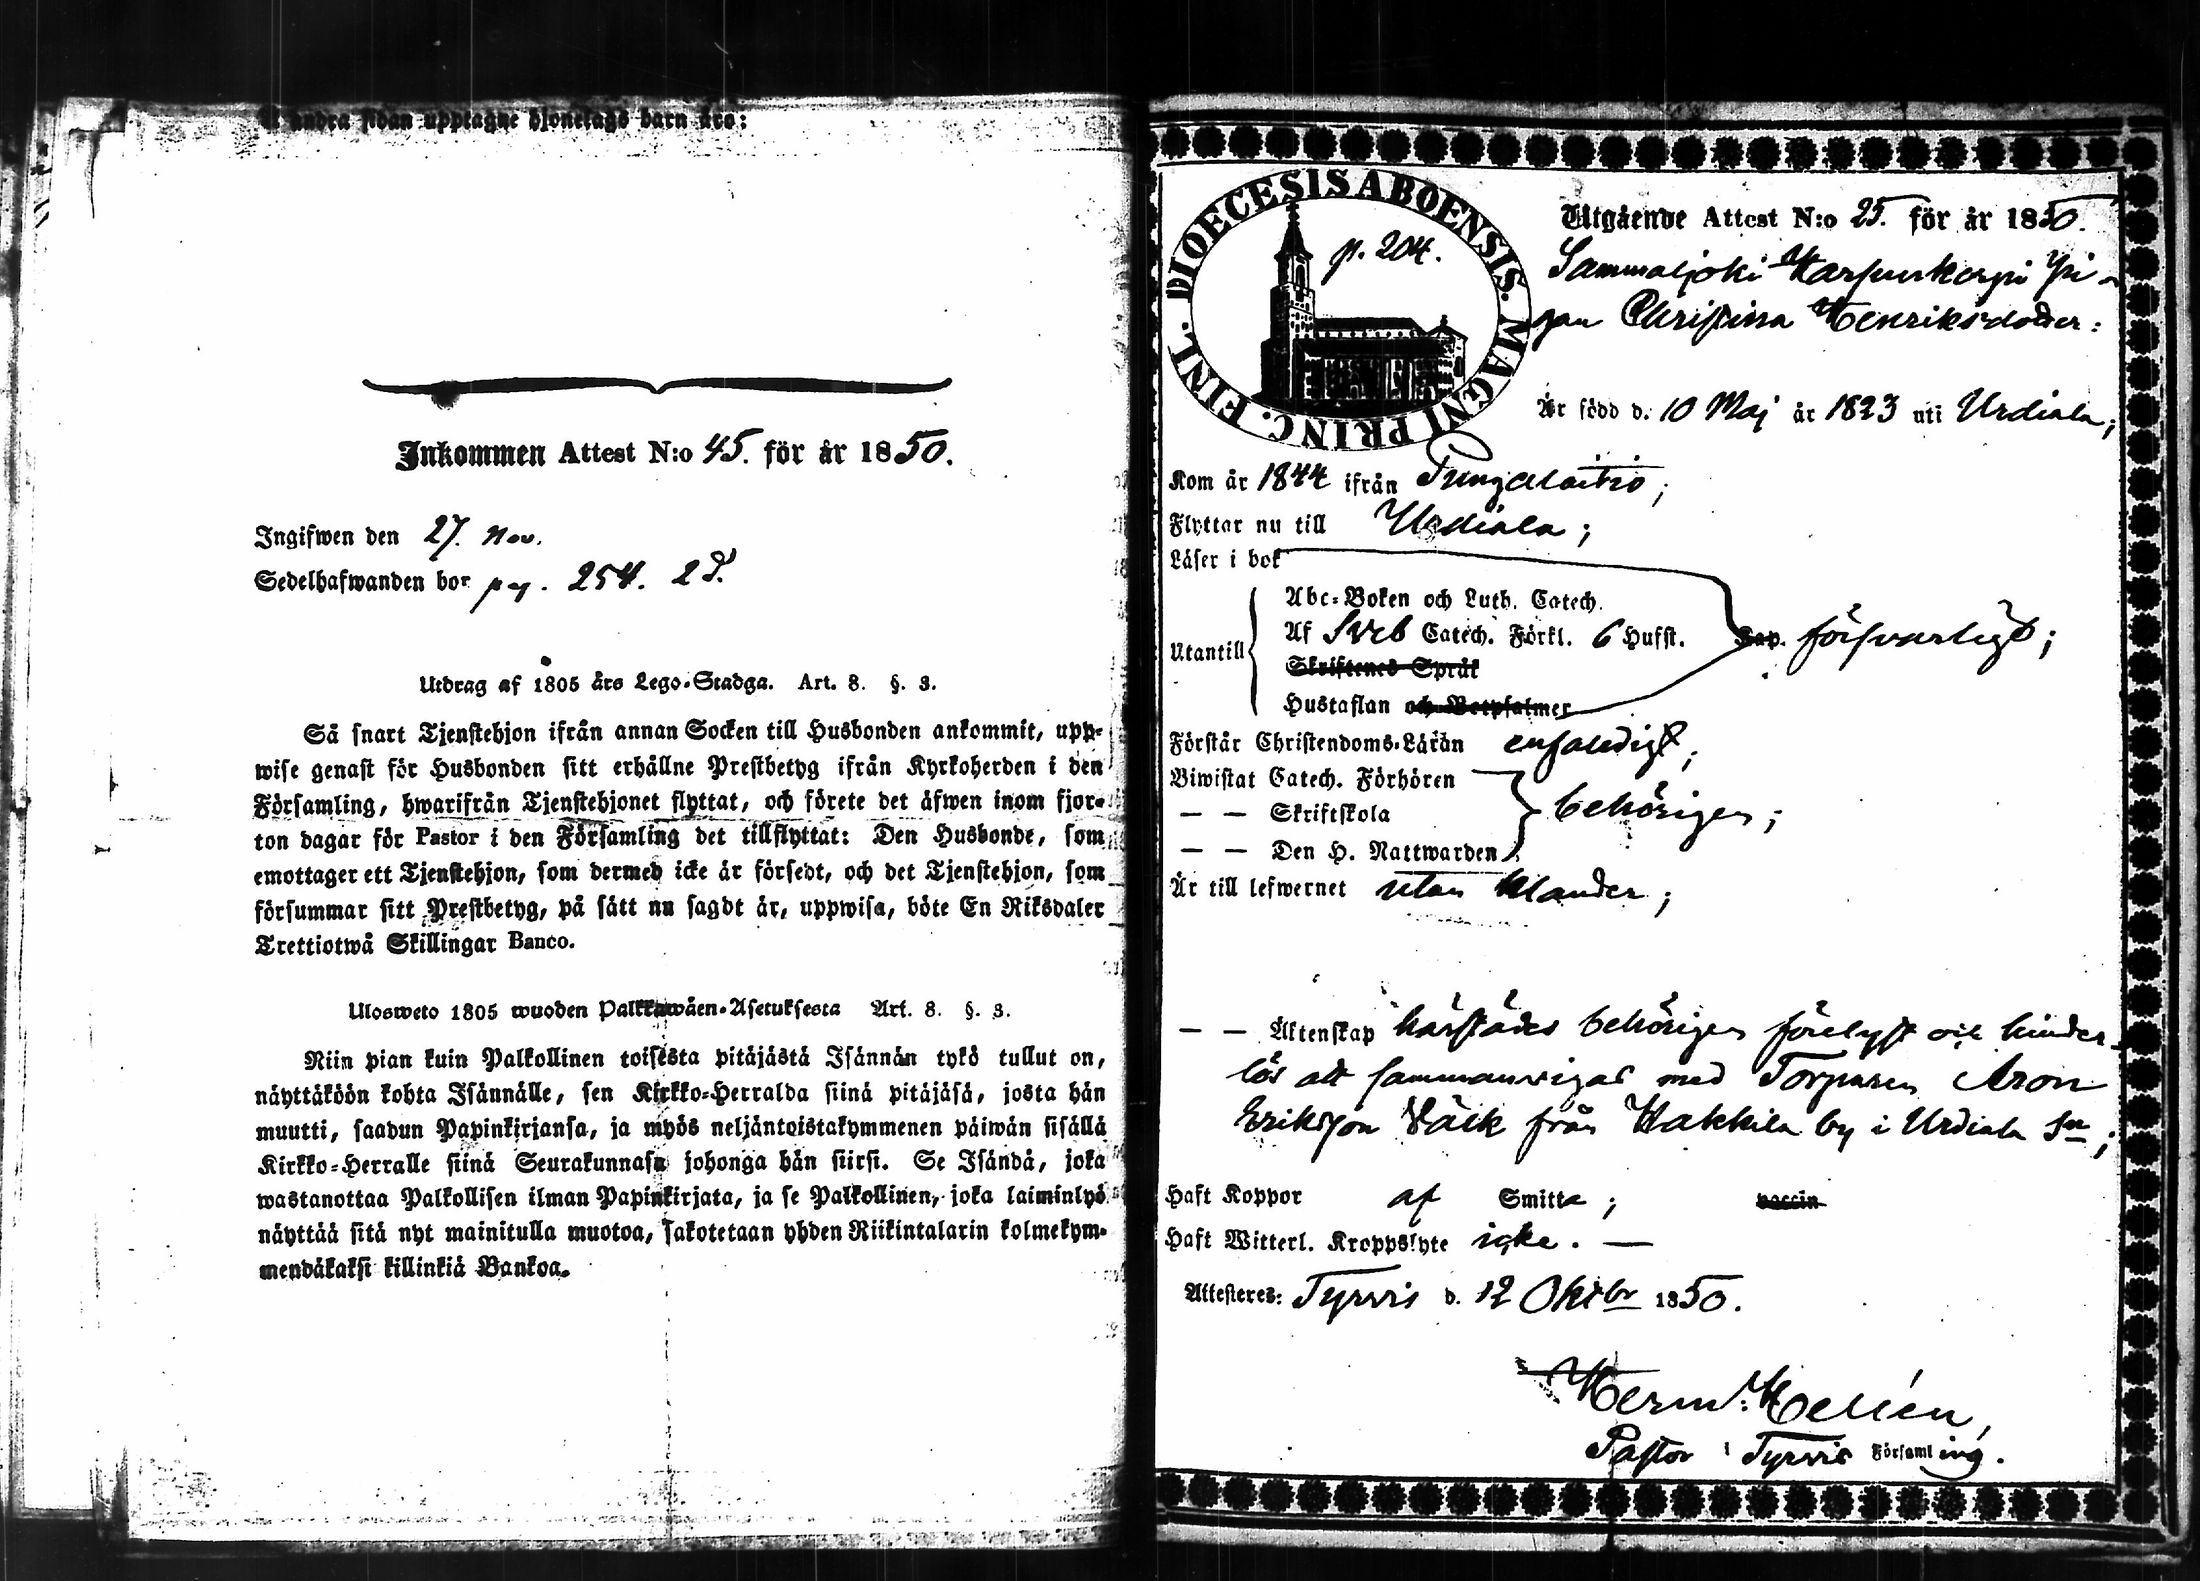 å andra sidan upptagne hjonelags barn äro:
Inkommen Attest N:o 45. för år 1850.
Ingifwen den 27. Nov.
Sedelhafwanden bor pag. 254. 2 d.
Utdrag af 1805 års Lego-Stadga. Art. 8. §. 3.
Så snart Tjenstehjon ifrån annan Socken till Husbonden ankommit, upp-
wise genast för Husbonden sitt erhållne Prestbetyg ifrån Kyrkoherden i den
Församling, hwarifrån Tjenstehjonet flyttat, och förete det äfwen inom fjor-
ton dagar för Pastor i den Församling det tillflyttat: Den Husbonde, som
emottager ett Tjenstehjon, som dermed icke är försedt, och det Tjenstehjon, som
försummar sitt Prestbetyg, på sätt nu sagdt är, uppwisa, böte En Riksdaler
Trettiotwå Skillingar Banco.
Ulosweto 1805 wuoden Palkkawäen-Asetuksesta Art. 8. §. 3.
Niin pian kuin Palkollinen toisesta pitäjästä Isännän tykö tullut on,
näyttäköön kohta Isännälle, sen Kirkko-Herralda siinä pitäjäsä, josta hän
muutti, saadun Papinkirjansa, ja myös neljäntoistakymmenen päiwän sisällä
Kirkko-Herralle siinä Seurakunnasa johonga hän siirsi. Se Isändä, joka
wastanottaa Palkollisen ilman Papinkirjata, ja se Palkollinen, joka laiminlyö
näyttää sitä nyt mainitulla muotoa, sakotetaan yhden Riikintalarin kolmekym-
mendäkaksi killinkiä Bankoa.
DIOECESIS ABOENSIS. MAGNI PRINC. FINL.
p. 204.
Utgående Attest N:o 25. för år 1850.
Sammaljoki Karsunkorpi Pi-
gan Christina Henriksdotter:
Är född d. 10 Maj år 1823 uti Urdiala;
Kom år 1844 ifrån Pungalaitio;
Flyttar nu till Urdiala;
Läser i bok
Utantill
Abc-Boken och Luth. Catech.
Af Sveb Catech. Förkl. 6 Hufst. Cap. försvarligt;
Skriftenes Språk
Hustaflan och Botpsalmer
Förstår Christendoms-Läran enfaldigt;
Biwistat Catech. Förhören
— — Skriftskola behörigen;
— — Den H. Nattwarden
Är till lefwernet utan klander;
— — Äktenskap härstädes behörigen förelyst och hinder-
lös att sammanvigas med Torparen Aron
Eriksson Väik från Hakkila by i Urdiala Sn;
Haft Koppor af Smitta; vaccin
Haft Witterl. Kroppslyte icke. —
Attesteres: Tyrvis d. 12 Oktbr 1850.
Hermn. Hellén,
Pastor i Tyrvis Församling.